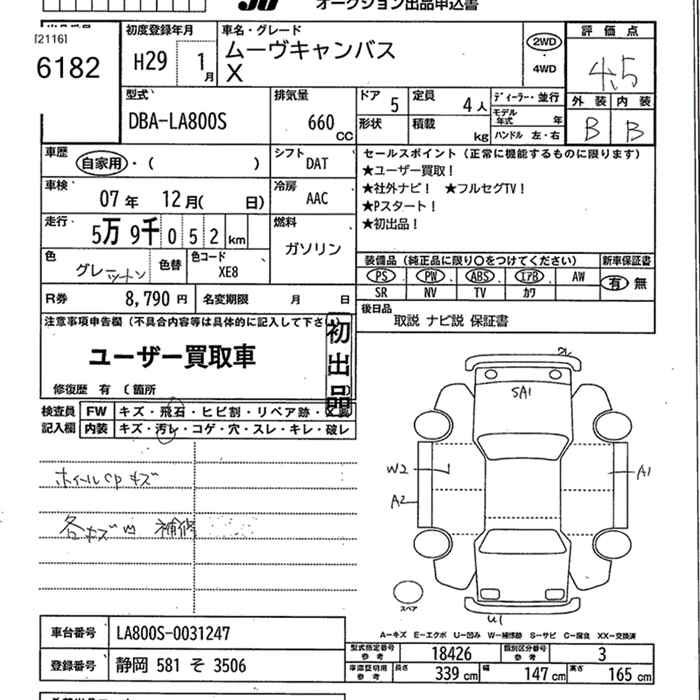 JU オークション出品申込書
[2116]
6182
初度登録年月
H29 1月
車名・グレード
ムーヴキャンバス
X
2WD
4WD
評価点
4.5
外装 内装
B B
型式
DBA-LA800S
排気量
660 CC
ドア 5
定員 4人
形状
積載 kg
ディーラー・並行
モデル年式 年
ハンドル 左・右
車歴
自家用・( )
シフト
DAT
車検
07年 12月( 日)
冷房
AAC
走行
5万9千052km
燃料
ガソリン
色
色替
色コード
XE8
R券 8,790円
名変期限 月 日
セールスポイント(正常に機能するものに限ります)
★ユーザー買取!
★社外ナビ! ★フルセグTV!
★Pスタート!
★初出品!
装備品(純正品に限り○をつけてください)
新車保証書
PS PW ABS エアB AW
有 無
SR NV TV カワ
後日品
取説 ナビ説 保証書
注意事項申告欄(不具合内容等は具体的に記入して下さい
ユーザー買取車
初出品
修復歴 有 (箇所 )
検査員記入欄
FW キズ・飛石・ヒビ割・リペア跡・
内装 キズ・汚レ・コゲ・穴・スレ・キレ・破レ
ホイールCPキズ
各キズ凹 補修
5A1
W2
A1
A2
U1
スペア
A-キズ E-エクボ U-凹み W-補修跡 S-サビ C-腐食 XX-交換済
車台番号 LA800S-0031247
登録番号 静岡 581 そ 3506
型式指定番号参考 18426
類別区分番号参考 3
車庫証明用参考
長さ 339 cm
幅 147 cm
高さ 165 cm